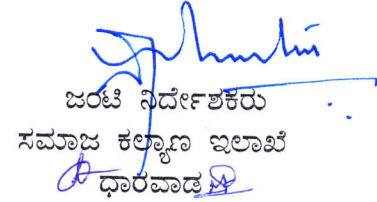 ಜಂಟಿ ನಿರ್ದೇಶಕರು
ಸಮಾಜ ಕಲ್ಯಾಣ ಇಲಾಖೆ
ಧಾರವಾಡ